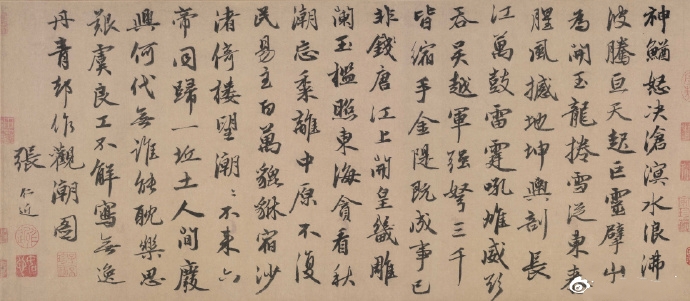 神鰌怒決滄溟水浪沸
波騰亘天起巨靈擘山
為開玉龍捲雪從東來
腥風撼地坤輿剖長
江萬鼓雷霆吼雄威欲
吞吳越軍強弩三千
皆縮手金隄既成事已
非錢唐江上開皇畿雕
闌玉檻照東海貪看秋
潮忘黍離中原不復
民易主百萬貔貅宿沙
渚倚樓望潮潮不來六
帝同歸一抔土人間廢
興何代無誰能耽樂思
艱虞良工不解寫無逸
丹青却作觀潮圖
張仁近